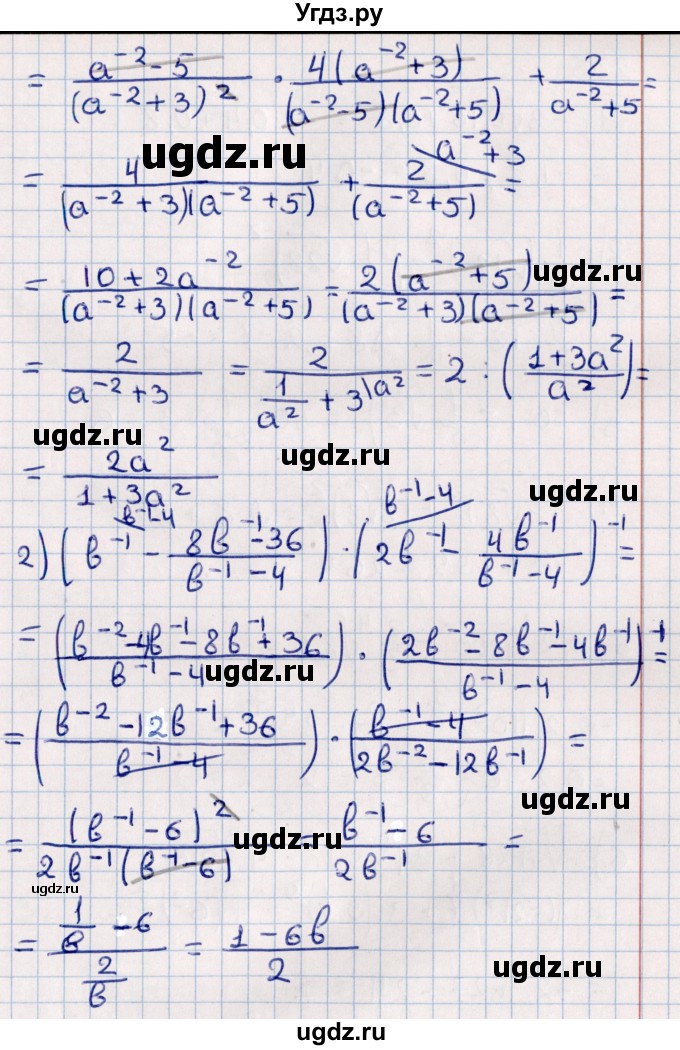 Угдз.ру
= (a⁻² - 5)/(a⁻² + 3)² · 4(a⁻² + 3)/((a⁻² - 5)(a⁻² + 5)) + 2/(a⁻² + 5) =
ugdz.ru
= 4/((a⁻² + 3)(a⁻² + 5)) + 2/(a⁻² + 5) \a⁻² + 3 =
= (10 + 2a⁻²)/((a⁻² + 3)(a⁻² + 5)) = 2(a⁻² + 5)/((a⁻² + 3)(a⁻² + 5)) =
ugdz.ru
= 2/(a⁻² + 3) = 2/(1/a² + 3\a²) = 2 : ((1 + 3a²)/a²) =
ugdz.ru
ugdz.ru
= 2a²/(1 + 3a²)
ugdz.ru
2) (b⁻¹ \b⁻¹ - 4 - (8b⁻¹ - 36)/(b⁻¹ - 4)) · (2b⁻¹ \b⁻¹ - 4 - 4b⁻¹/(b⁻¹ - 4))⁻¹ =
= ((b⁻² - 4b⁻¹ - 8b⁻¹ + 36)/(b⁻¹ - 4)) · ((2b⁻² - 8b⁻¹ - 4b⁻¹)/(b⁻¹ - 4))⁻¹ =
ugdz.ru
= ((b⁻² - 12b⁻¹ + 36)/(b⁻¹ - 4)) · ((b⁻¹ - 4)/(2b⁻² - 12b⁻¹)) =
ugdz.ru
= (b⁻¹ - 6)²/(2b⁻¹(b⁻¹ - 6)) = (b⁻¹ - 6)/(2b⁻¹) =
ugdz.ru
ugdz.ru
= (1/b - 6)/(2/b) = (1 - 6b)/2
ugdz.ru
ugdz.ru